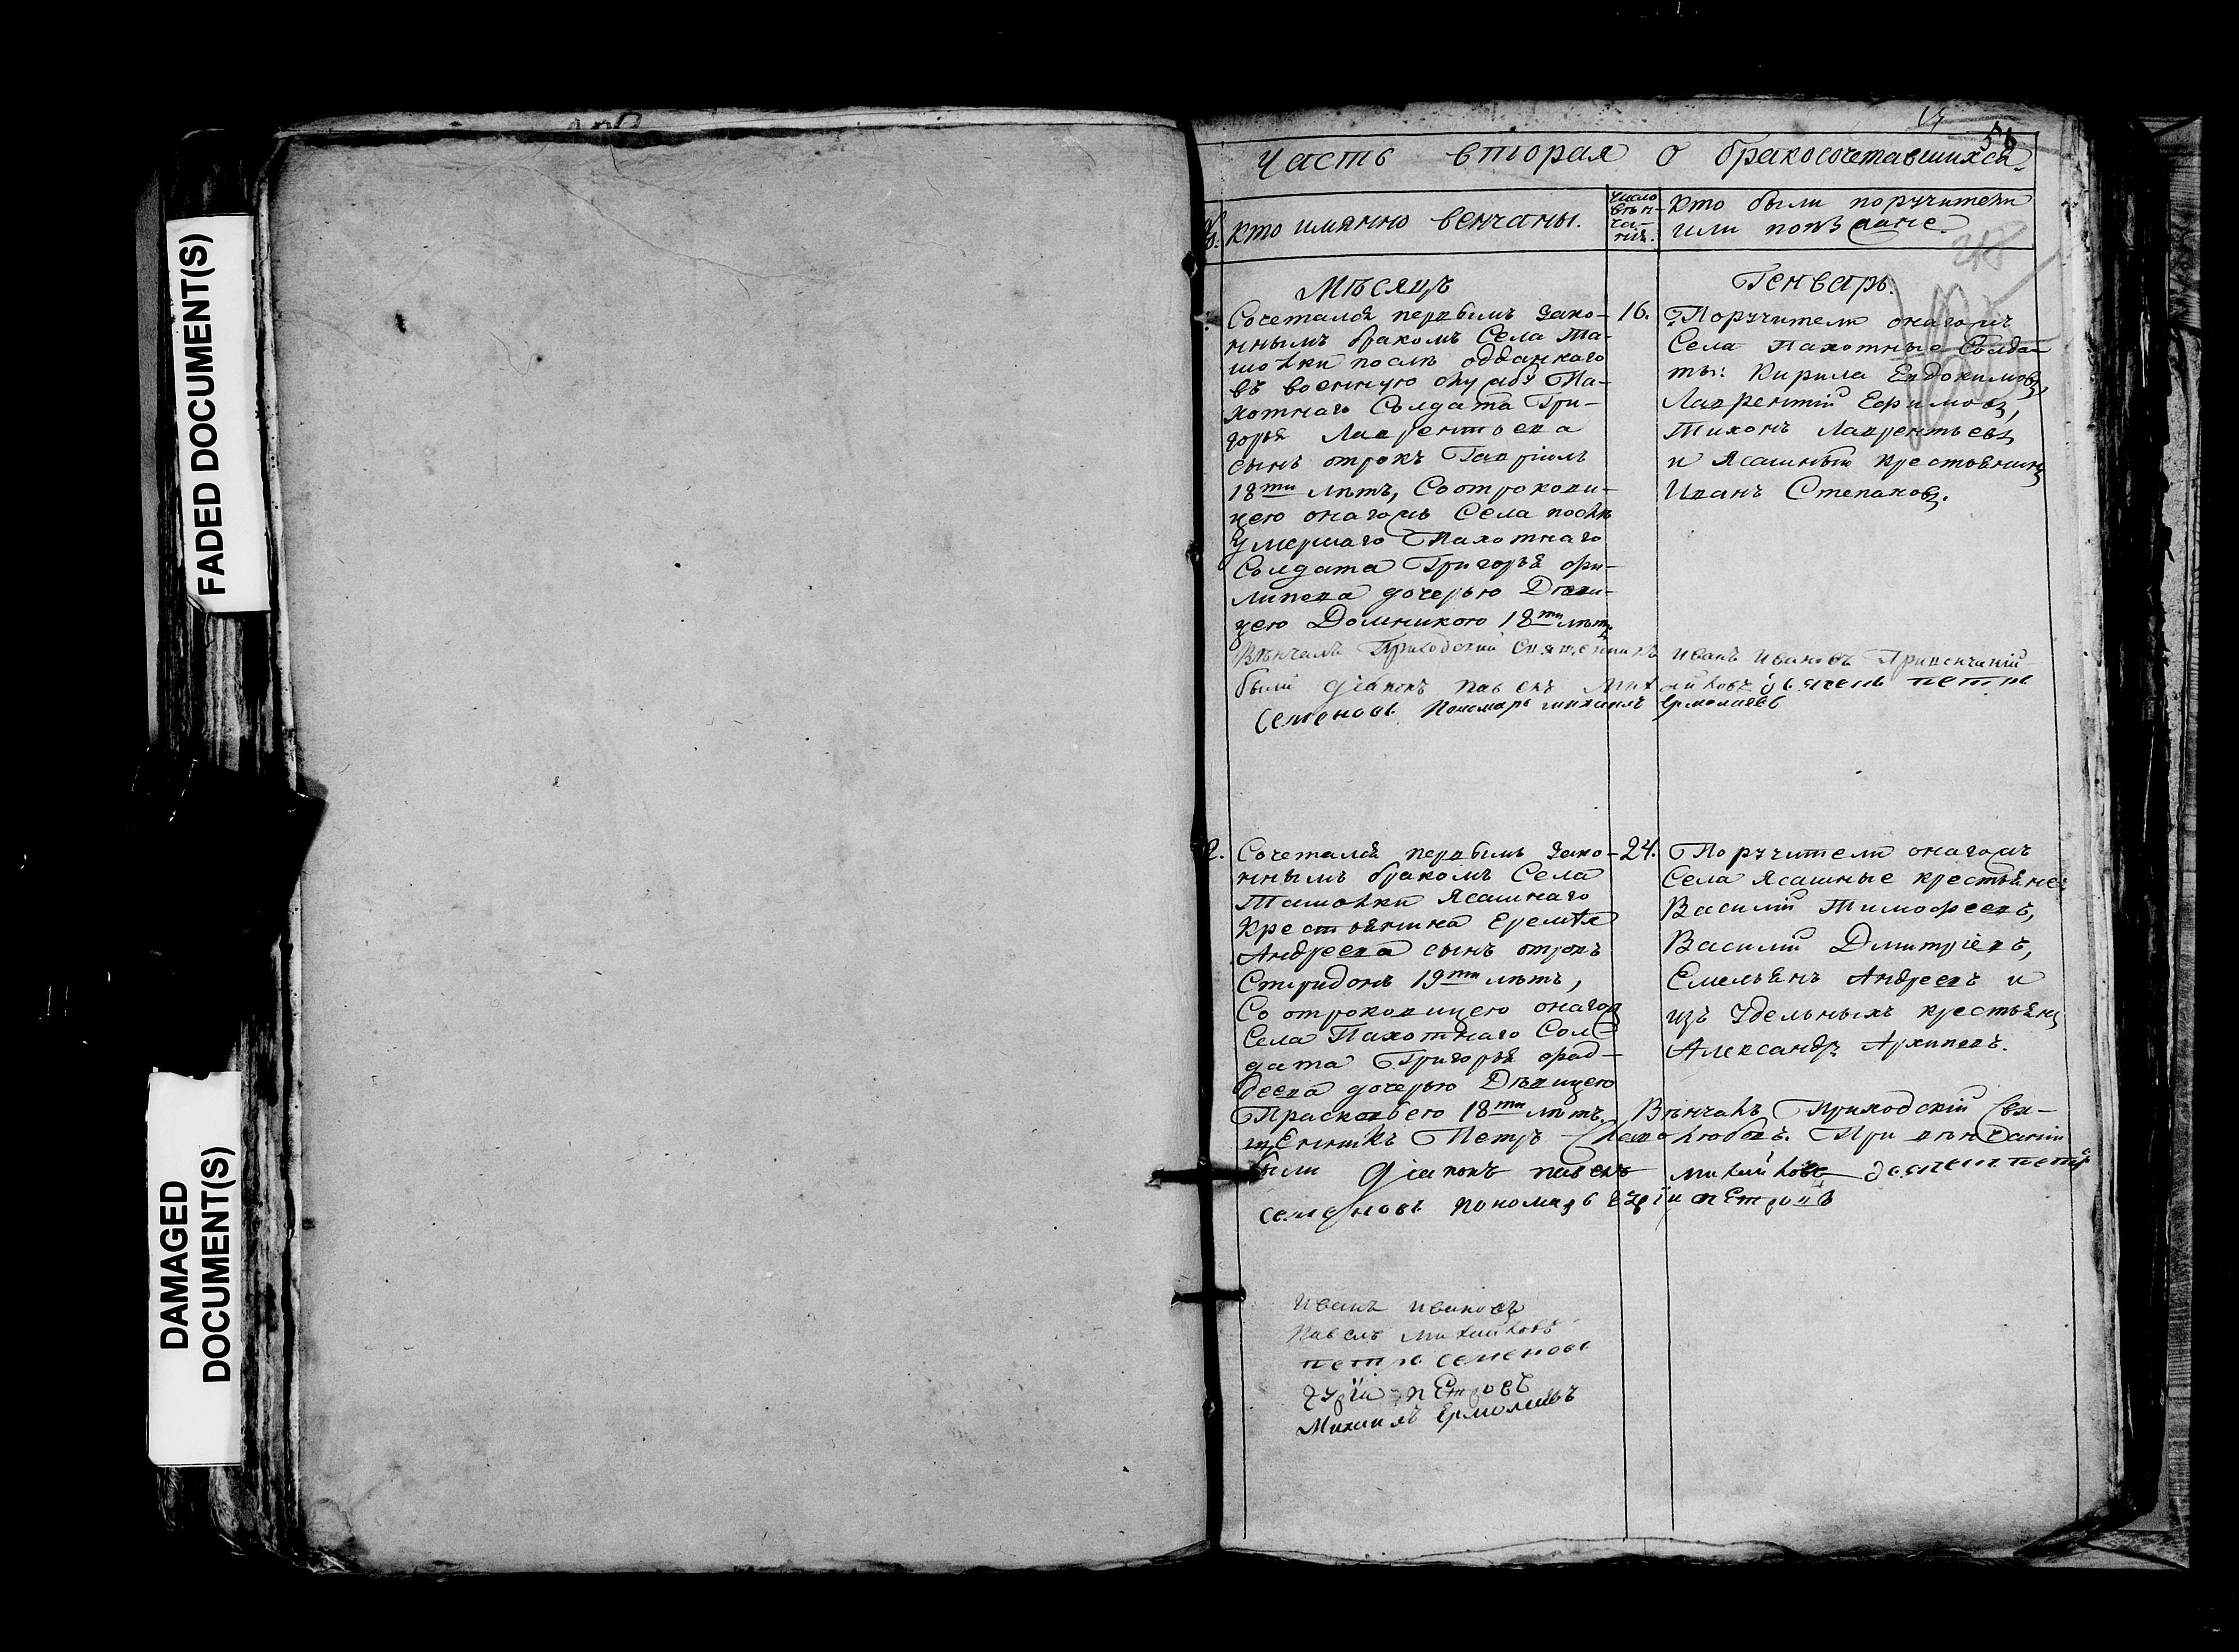 FADED DOCUMENT(S)
DAMAGED
DOCUMENT(S)
Часть вторая о бракосочетавшихся.
№. кто имянно венчаны.
число
вѣн-
ча-
нiя.
кто были поручители
или поѣзжане.
Мѣсяцъ
Генварь.
Сочетался первымъ зако-
ннымъ бракомъ Села Та-
шолки послѣ отданнаго
въ военную службу Па-
хотнаго Солдата Гри-
горья Лаврентьева
сынъ отрокъ Гавріилъ
18ти лѣтъ, Со отрокови-
цею онагожъ Села послѣ
умершаго Пахотнаго
Солдата Григорья Фи-
липева дочерью Дѣви-
цею Домникою 18ти лѣтъ
16.
Поручители онагожъ
Села пахотные Солда-
ты: Кирила Евдокимовъ,
Лаврентій Ефимовъ,
Тихонъ Лаврентьевъ,
и Ясашный крестьянинъ
Иванъ Степановъ.
Вѣнчалъ Приходскій Священникъ Иванъ Ивановъ При венчаніи
были діаконъ Павелъ Михайловъ дьячекъ петръ
семеновъ Пономарь михаилъ Ермолаевъ
2.
Сочетался первымъ зако-
ннымъ бракомъ Села
Ташолки Ясашнаго
Крестьянина Еремѣя
Андреева сынъ отрокъ
Спиридонъ 19ти лѣтъ,
Со отроковицею онагожъ
Села Пахотнаго Сол-
дата Григорья Фад-
деева дочерью Дѣвицею
Прасковьею 18ти лѣтъ.
24.
Поручители онагожъ
Села Ясашные крестьяне:
Василій Тимофеевъ,
Василій Дмитріевъ,
Емельянъ Андреевъ и
изъ Удельныхъ крестьянъ
Александръ Архиповъ.
Вѣнчалъ Приходскій Свя-
щенникъ Петръ При вѣнчаніи
были діаконъ павелъ михайловъ дьячекъ петръ
семеновъ пономарь гурiи петровъ
Иванъ Ивановъ
Павелъ Михайловъ
петръ семеновъ
гурiи петровъ
Михаилъ Ермолаевъ